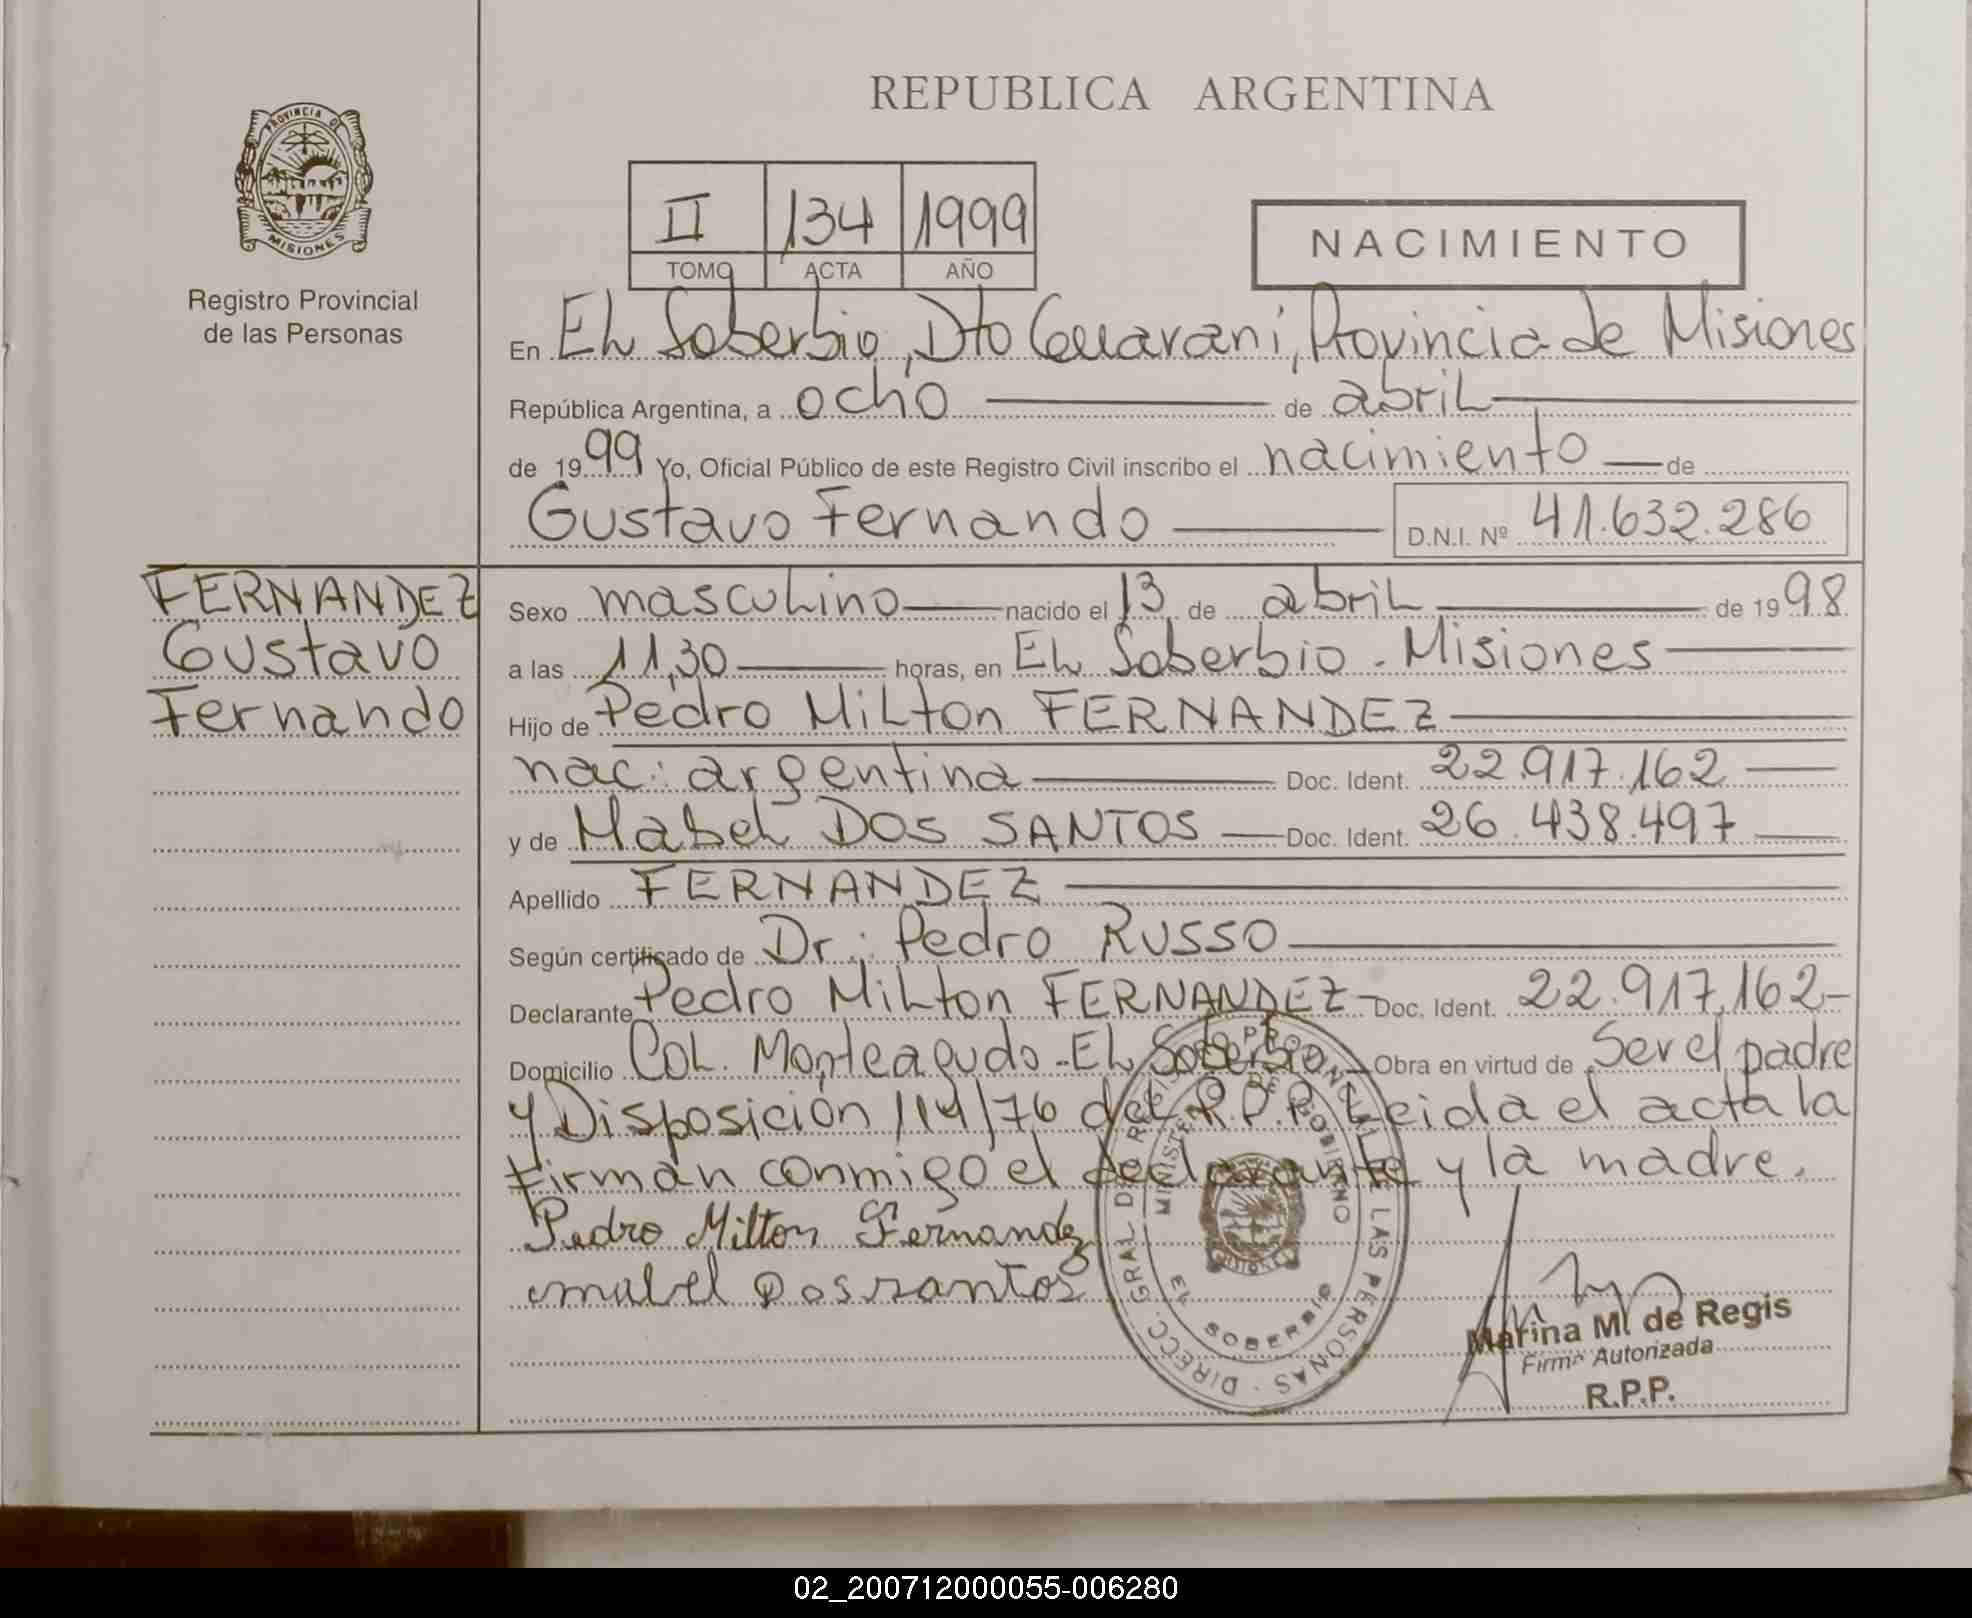 REPUBLICA ARGENTINA
PROVINCIA DE
MISIONES
Registro Provincial
de las Personas
II 134 1999
TOMO ACTA AÑO
NACIMIENTO
En El Soberbio, Dto Guaraní, Provincia de Misiones
República Argentina, a ocho de abril
de 1999 Yo, Oficial Público de este Registro Civil inscribo el nacimiento de
Gustavo Fernando D.N.I. Nº 41.632.286
FERNANDEZ
Gustavo
Fernando
Sexo masculino nacido el 13 de abril de 1998
a las 11,30 horas, en El Soberbio - Misiones
Hijo de Pedro Milton FERNANDEZ
nac: argentina Doc. Ident. 22.917.162
y de Mabel DOS SANTOS Doc. Ident. 26.438.497
Apellido FERNANDEZ
Según certificado de Dr.: Pedro RUSSO
Declarante Pedro Milton FERNANDEZ Doc. Ident. 22.917.162
Domicilio Col. Monteagudo - El Soberbio Obra en virtud de Ser el padre
y Disposición 114/76 del R.P.P. Leida el acta la
firman conmigo el declarante y la madre.
Pedro Milton Fernandez
mabel Dos santos
DIRECC. GRAL DEL REGISTRO PROVINCIAL DE LAS PERSONAS
MINISTERIO DE GOBIERNO
EL SOBERBIO
Marina M. de Regis
Firma Autorizada
R.P.P.
02_200712000055-006280